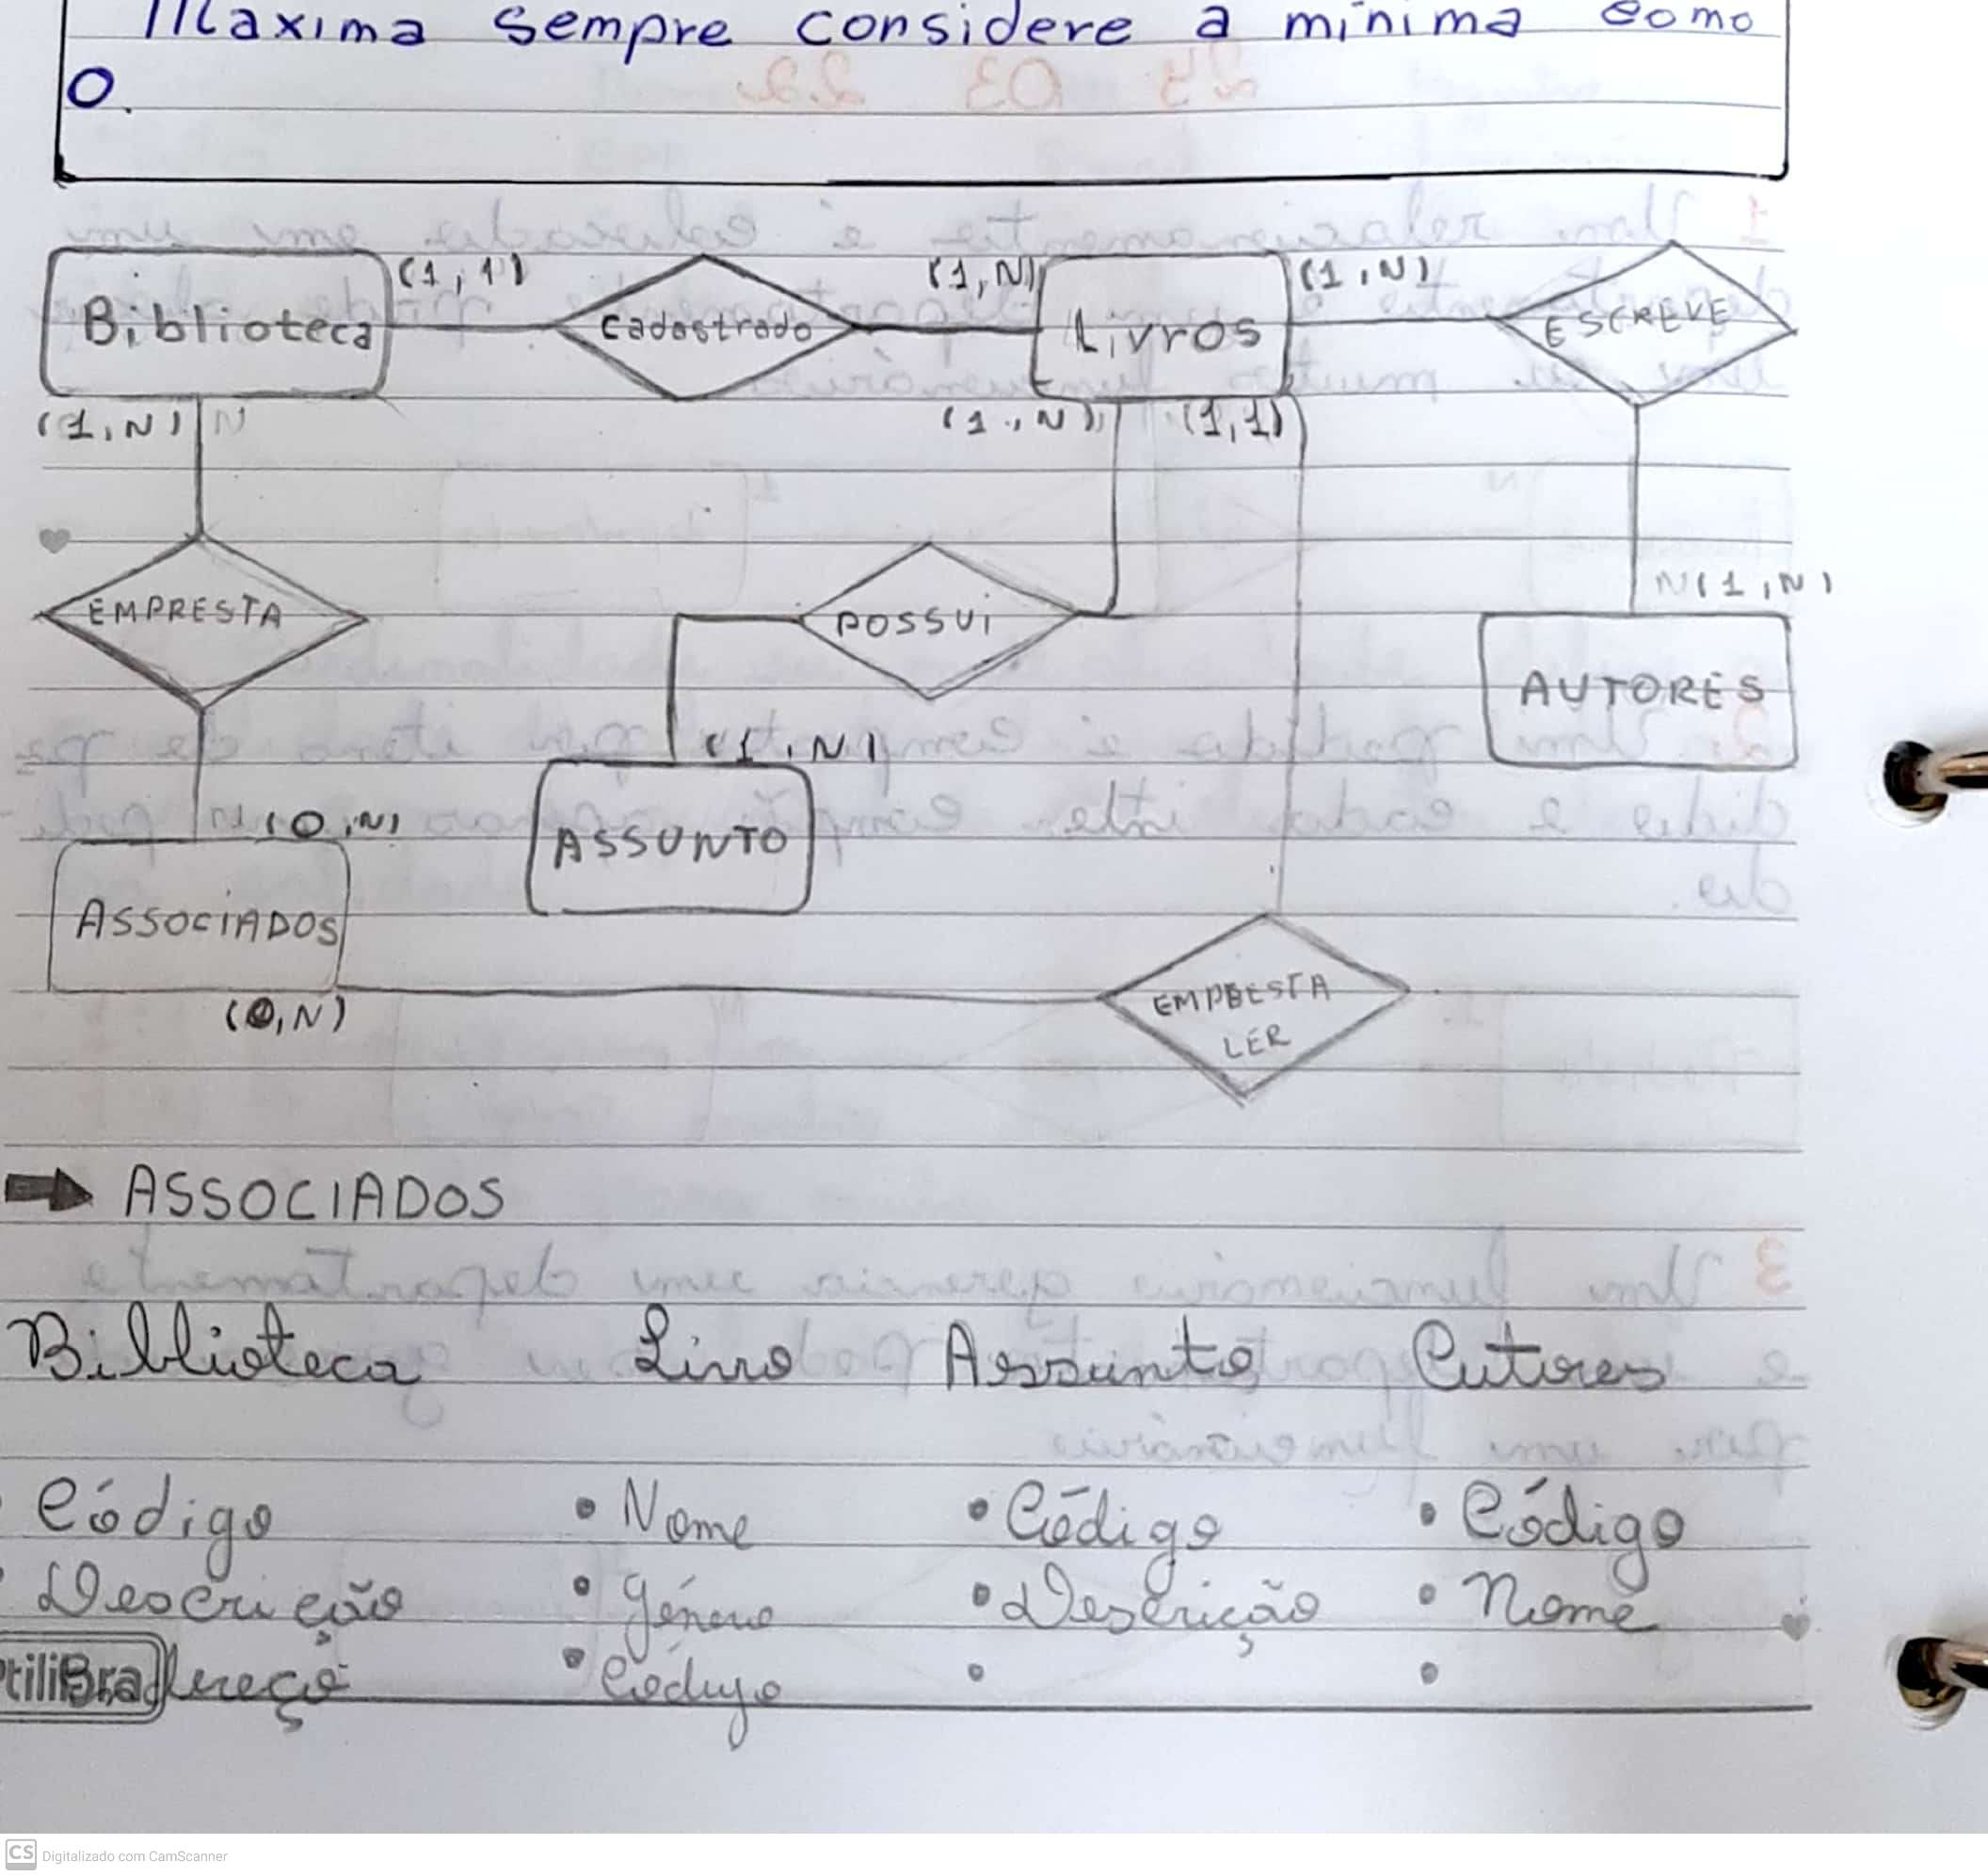 Maxima sempre considere a mínima como
0.
25 03 22
Biblioteca (1,1) Cadastrado (1,N) Livros (1,N) ESCREVE
(1,N) N (1,N) (1,1)
EMPRESTA POSSUI N(1,N)
AUTORES
(1,N)
N (0,N) ASSUNTO
ASSOCIADOS
(0,N) EMPRESTA
LER
➡ ASSOCIADOS
Biblioteca Livro Assunto Autores
Código • Nome • Código • Código
Descrição • Gênero • Descrição • Nome
• Código • •
tilibra
CS Digitalizado com CamScanner